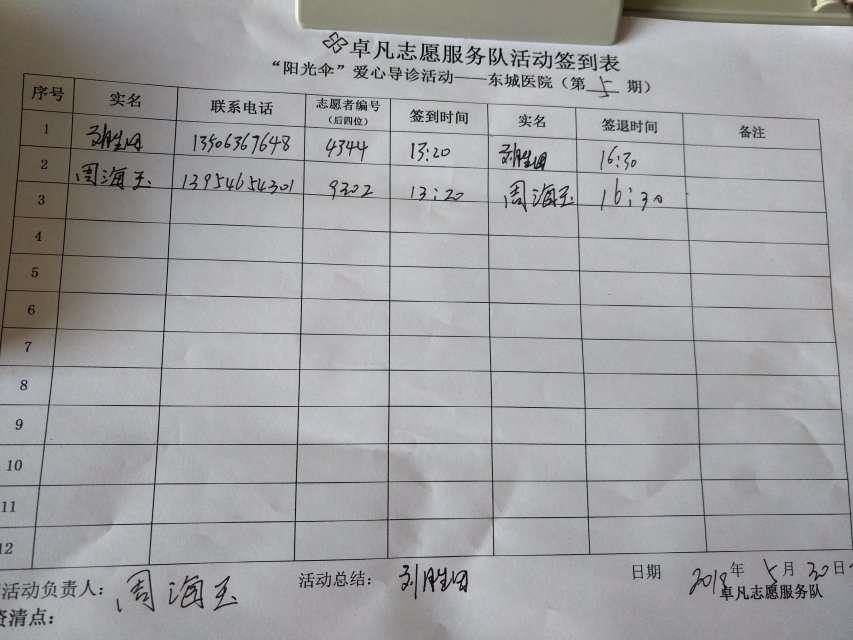 卓凡志愿服务队活动签到表
“阳光伞”爱心导诊活动——东城医院（第5期）
序号 实名 联系电话 志愿者编号（后四位） 签到时间 实名 签退时间 备注
1 刘胜田 13506367648 4344 13:20 刘胜田 16:30
2 周海玉 13954654301 9302 13:20 周海玉 16:30
3
4
5
6
7
8
9
10
11
12
活动负责人：周海玉 活动总结：刘胜田 日期 2018年5月30日
资清点： 卓凡志愿服务队